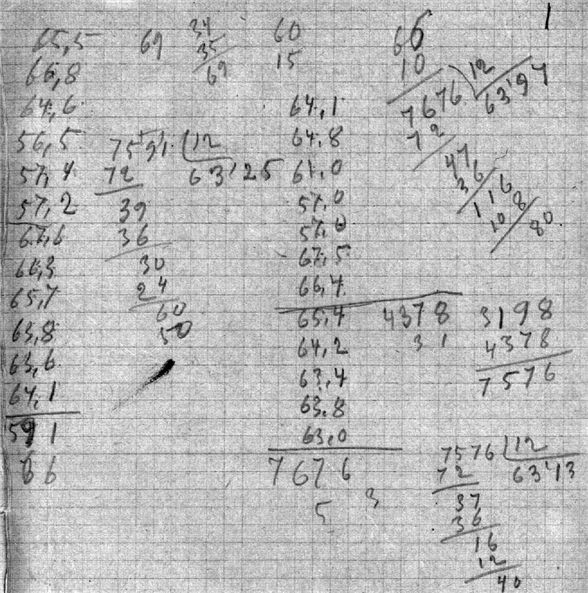 1
65,5
66,8
64,6
56,5
57,4
57,2
66,3
65,7
63,8
63,6
64,1
591
66
69
34
35
69
7591 12
72 63'25
39
36
30
24
60
50
60
15
64,1
64,8
61,0
57,0
57,0
67,5
66,4
65,4
64,2
63,4
63,8
63,0
7676
5 3
66
10
7676 12
72 63'97
47
36
116
108
80
4378
31
3198
4378
7576
7576 12
72 63'13
37
36
16
12
40